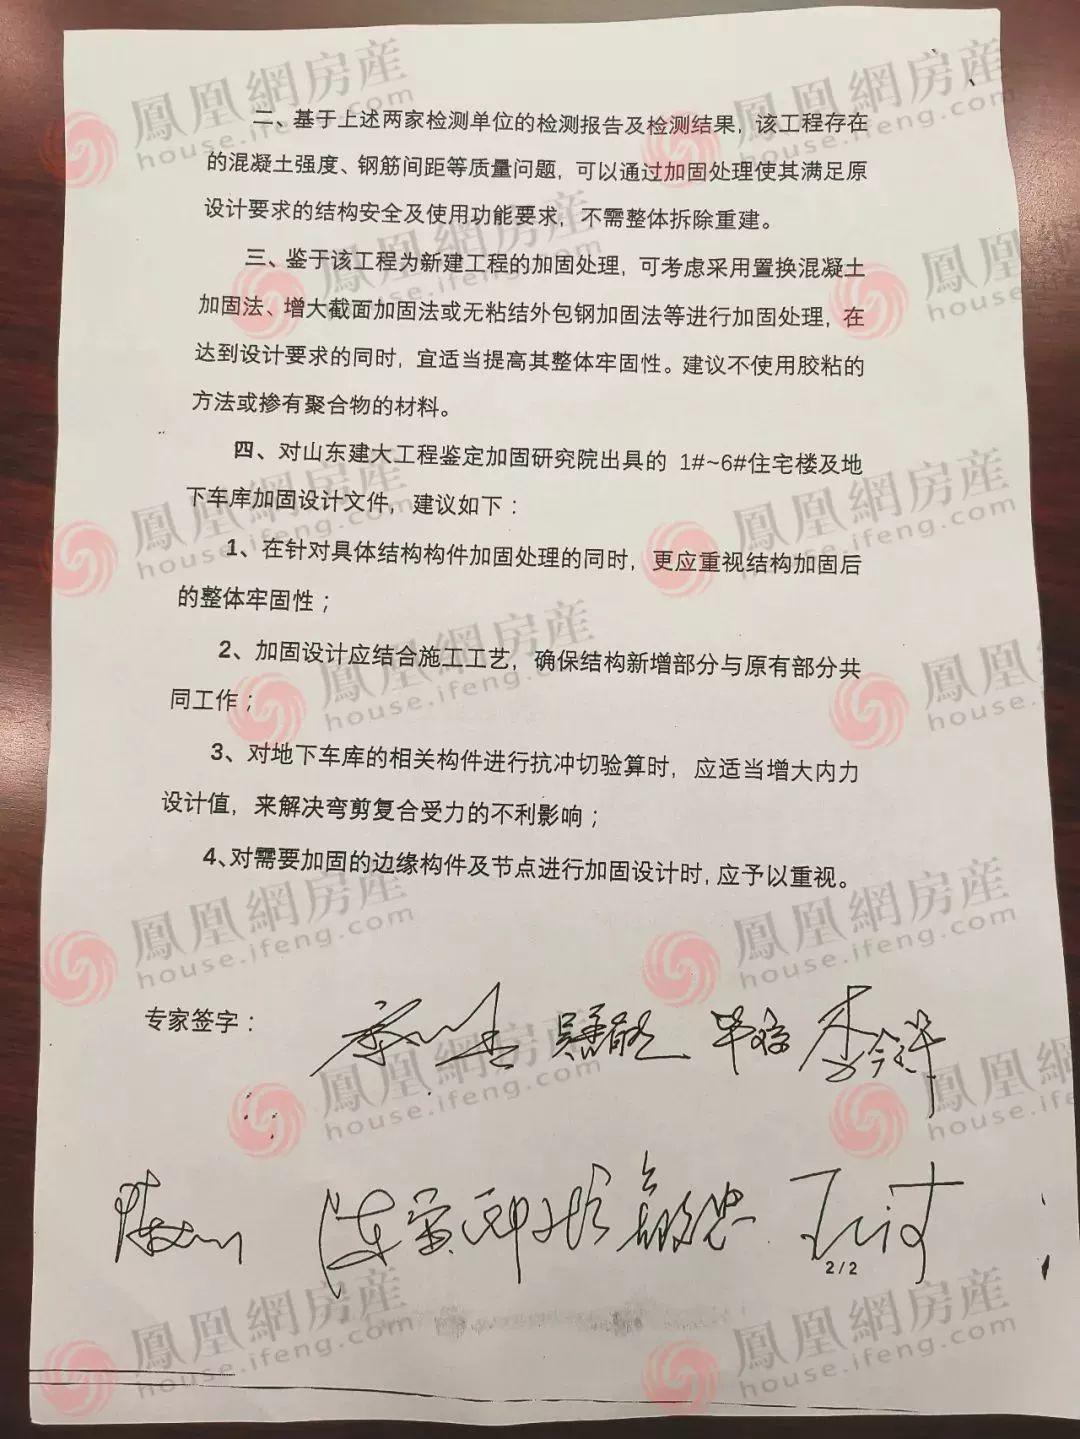 二、基于上述两家检测单位的检测报告及检测结果，该工程存在
的混凝土强度、钢筋间距等质量问题，可以通过加固处理使其满足原
设计要求的结构安全及使用功能要求，不需整体拆除重建。
三、鉴于该工程为新建工程的加固处理，可考虑采用置换混凝土
加固法、增大截面加固法或无粘结外包钢加固法等进行加固处理，在
达到设计要求的同时，宜适当提高其整体牢固性。建议不使用胶粘的
方法或掺有聚合物的材料。
四、对山东建大工程鉴定加固研究院出具的 1#~6#住宅楼及地
下车库加固设计文件，建议如下：
1、在针对具体结构构件加固处理的同时，更应重视结构加固后
的整体牢固性；
2、加固设计应结合施工工艺，确保结构新增部分与原有部分共
同工作；
3、对地下车库的相关构件进行抗冲切验算时，应适当增大内力
设计值，来解决弯剪复合受力的不利影响；
4、对需要加固的边缘构件及节点进行加固设计时,应予以重视。
专家签字：
2 / 2
鳳凰網房産
house.ifeng.com
鳳凰網房産
house.ifeng.com
鳳凰網房産
house.ifeng.com
鳳凰網房産
house.ifeng.com
鳳凰網房産
house.ifeng.com
鳳凰網房産
house.ifeng.com
鳳凰網房産
house.ifeng.com
鳳凰網房産
house.ifeng.com
鳳凰網房産
house.ifeng.com
鳳凰網房産
house.ifeng.com
鳳凰網房産
house.ifeng.com